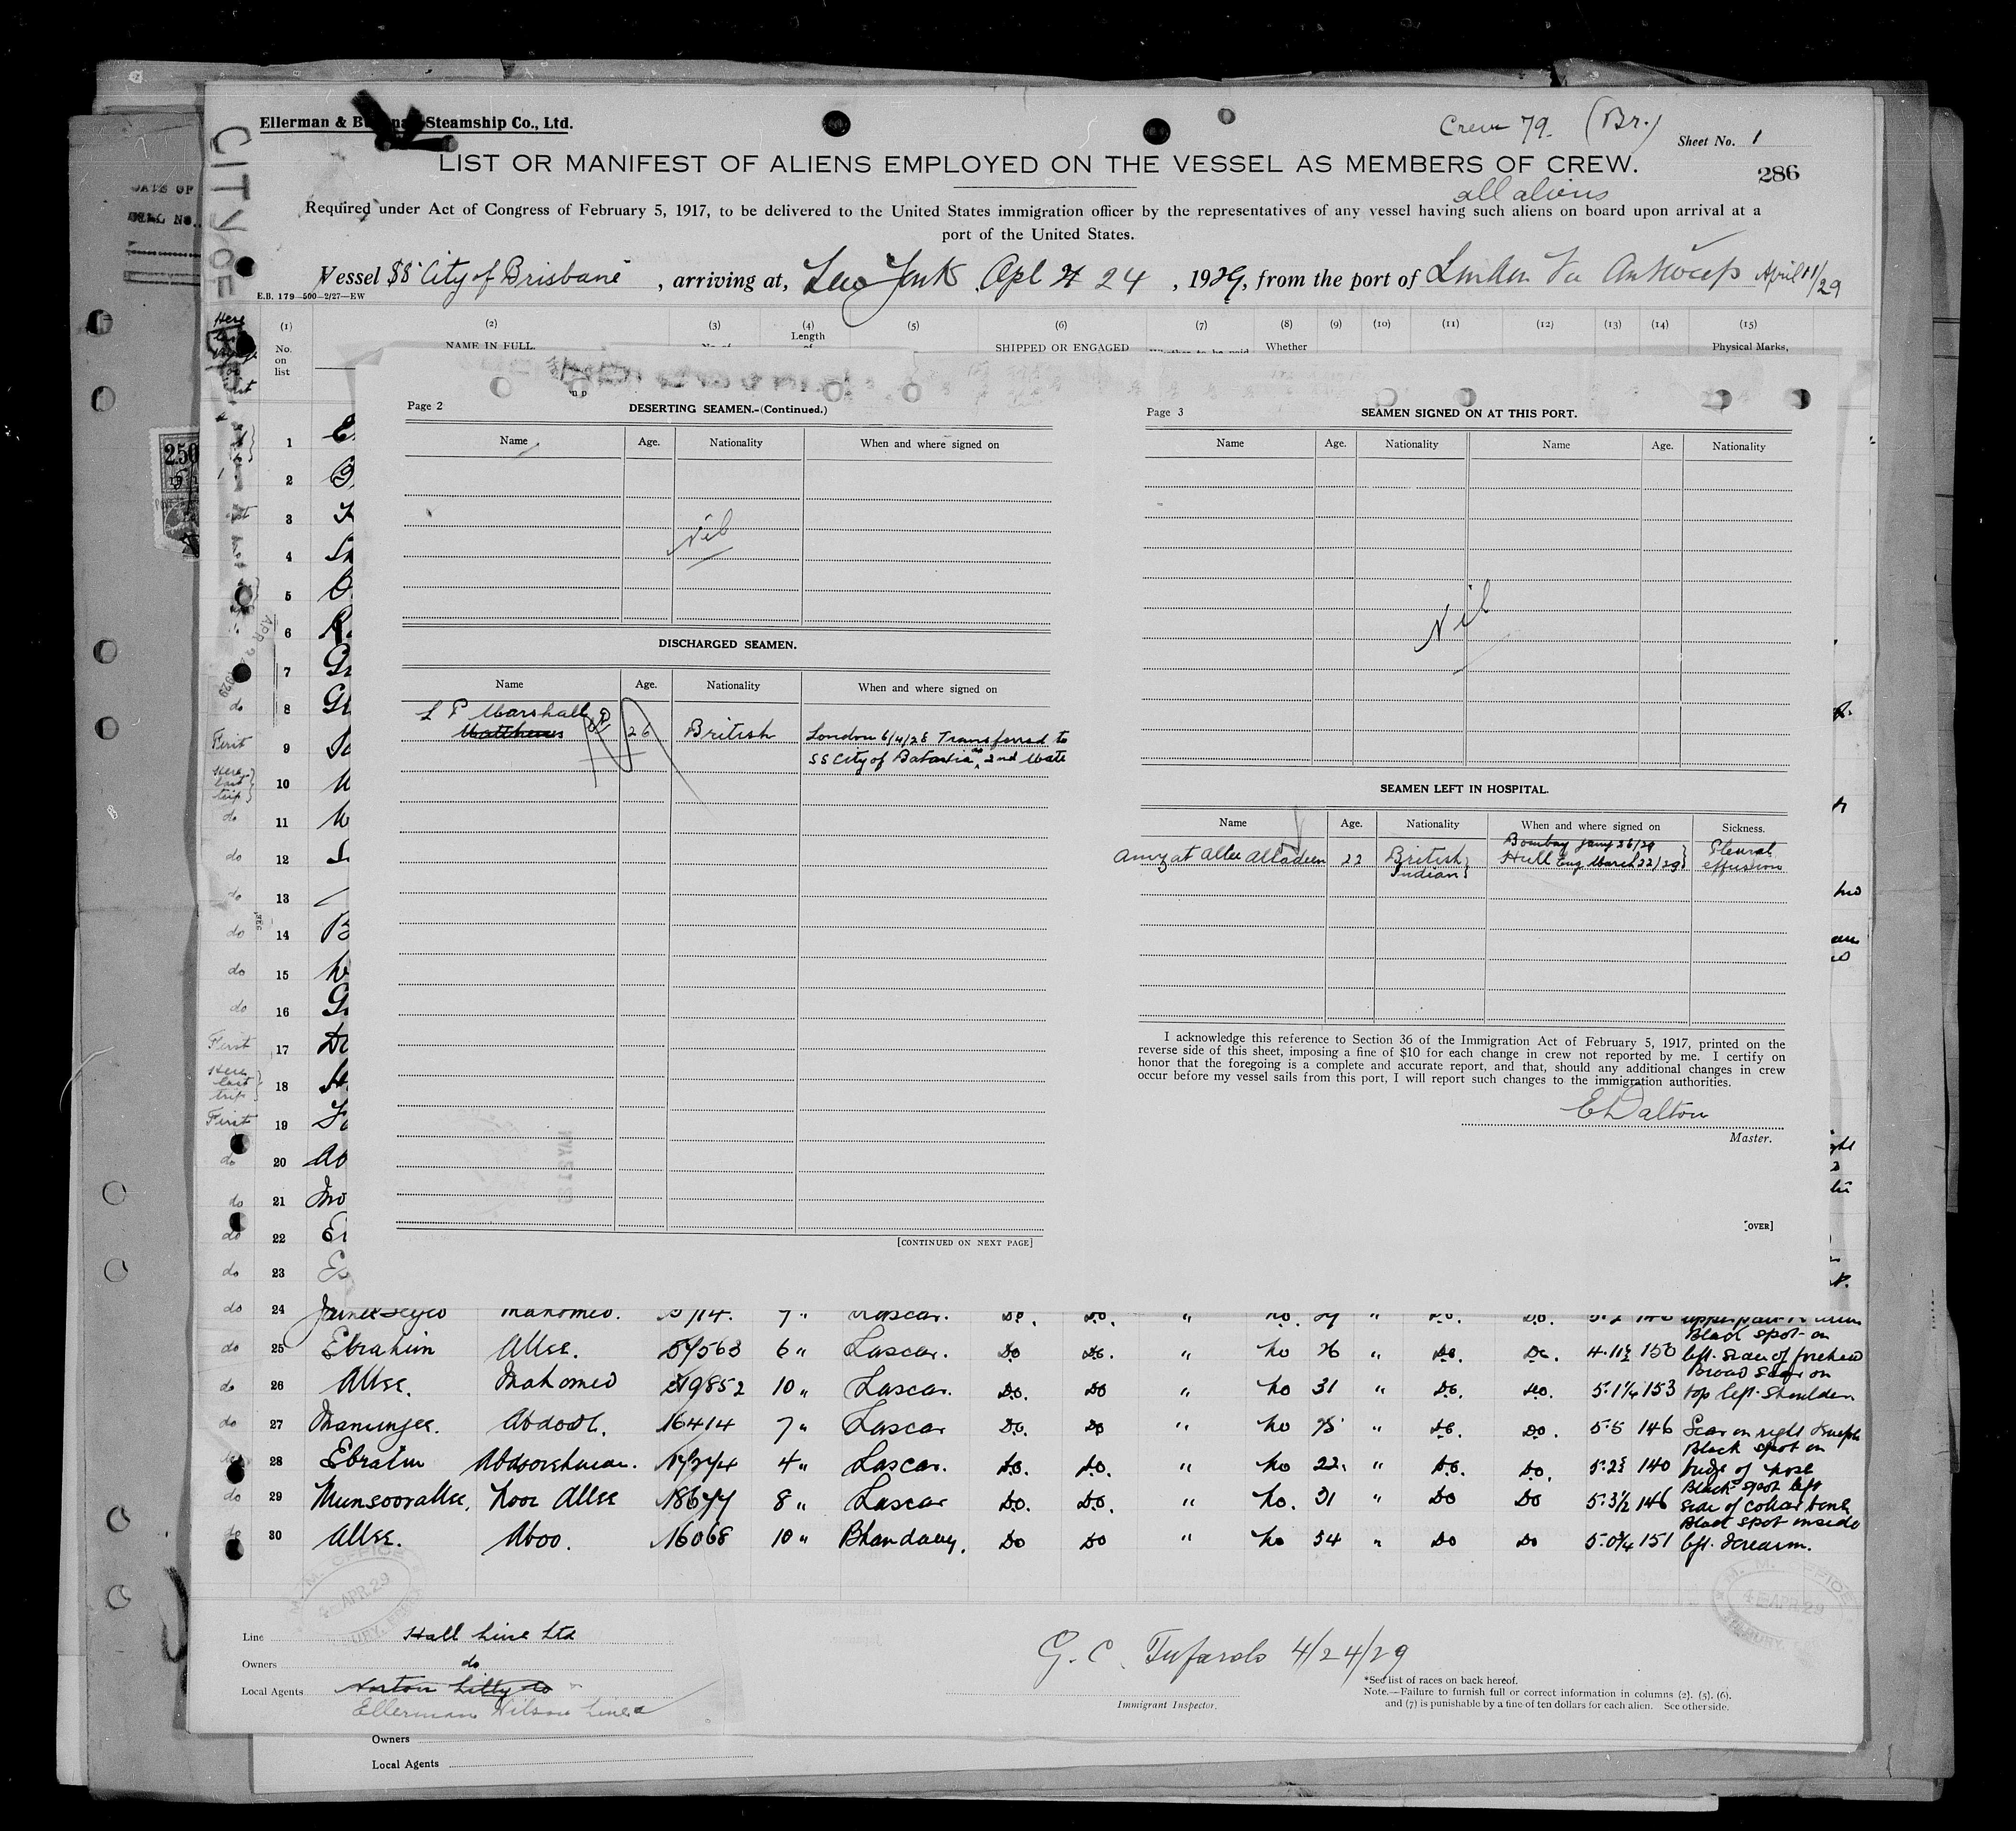 Ellerman & Steamship Co., Ltd.
Crew 79. (Br.)
Sheet No. 1
LIST OR MANIFEST OF ALIENS EMPLOYED ON THE VESSEL AS MEMBERS OF CREW.
286
all aliens
Required under Act of Congress of February 5, 1917, to be delivered to the United States immigration officer by the representatives of any vessel having such aliens on board upon arrival at a
port of the United States.
Vessel SS City of Brisbane, arriving at, New York Apl 24, 1929, from the port of London Via Antwerp April 11/29
E.B. 179—500—2/27—EW
CITY OF
(1) (2) (3) (4) (5) (6) (7) (8) (9) (10) (11) (12) (13) (14) (15)
No. on list
NAME IN FULL.
Length
SHIPPED OR ENGAGED
Whether
Physical Marks,
Page 2
DESERTING SEAMEN.-(Continued.)
Name Age. Nationality When and where signed on
Nil
DISCHARGED SEAMEN.
Name Age. Nationality When and where signed on
L P Marshall
Matthews 26 British London 6/4/28 Transferred to
SS City of Batavia as 2nd Mate
[CONTINUED ON NEXT PAGE]
Page 3
SEAMEN SIGNED ON AT THIS PORT.
Name Age. Nationality Name Age. Nationality
Nil
SEAMEN LEFT IN HOSPITAL.
Name Age. Nationality When and where signed on Sickness.
Bombay Jany 26/29
Amzat Allee Alladeen 22 British Hull Eng March 22/29 Pleural
Indian effusion
I acknowledge this reference to Section 36 of the Immigration Act of February 5, 1917, printed on the
reverse side of this sheet, imposing a fine of $10 for each change in crew not reported by me. I certify on
honor that the foregoing is a complete and accurate report, and that, should any additional changes in crew
occur before my vessel sails from this port, I will report such changes to the immigration authorities.
E Dalton
Master.
[OVER]
1
2
3
4
5
6
7
do 8
First 9
Here last trip 10
do 11
do 12
do 13
do 14
do 15
do 16
First 17
Here last trip 18
First 19
do 20
do 21
do 22
do 23
do 24 Mahomed. 7 " Lascar. Do. Do. " no. " Do. Do.
Black spot on
do 25 Ebrahim Allee. 6 " Lascar. Do Do. " no 26 " Do. Do. 4.11½ 150 left side of forehead
Broad scar on
do 26 Allee. Mahomed 10 " Lascar. Do. Do " no 31 " Do. Do. 5.1¼ 153 top left shoulder
do 27 Manunjee. Abdool. 16414 7 " Lascar Do. Do " no " Do. Do. 5.5 146 Scar on right
Black spot on
28 Ebrahim 4 " Lascar. Do. Do. " no 22. " Do. Do. 140 bridge of nose
Black spot left
do 29 Munsoorallee, Noor Allee 18677 8 " Lascar Do. Do. " no. 31 " Do Do 5.3½ 146 side of collar bone
Black spot inside
do 30 Allee. Aboo. 16068 10 " Bhandary. Do Do " no 54 " Do Do 5.0¼ 151 left forearm.
Line Hall Line Ltd
Owners do
Local Agents Norton Lilly Co
Ellerman Wilson Line
G. C. Tufarolo 4/24/29
Immigrant Inspector.
*See list of races on back hereof.
Note.—Failure to furnish full or correct information in columns (2), (5), (6),
and (7) is punishable by a fine of ten dollars for each alien. See other side.
Owners
Local Agents